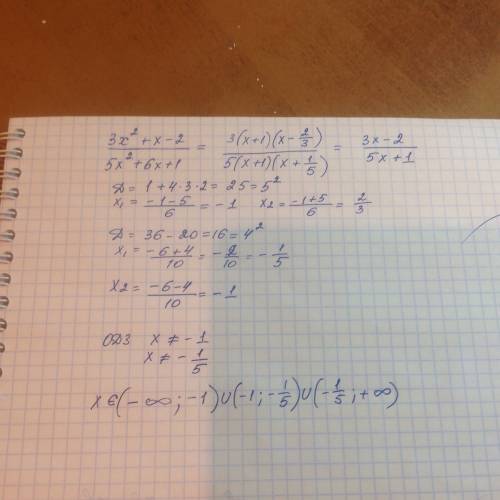 (3x² + x - 2)/(5x² + 6x + 1) = (3(x+1)(x - 2/3))/(5(x+1)(x + 1/5)) = (3x - 2)/(5x + 1)
Д = 1 + 4·3·2 = 25 = 5²
x₁ = (-1-5)/6 = -1 x₂ = (-1+5)/6 = 2/3
Д = 36 - 20 = 16 = 4²
x₁ = (-6+4)/10 = -2/10 = -1/5
x₂ = (-6-4)/10 = -1
ОДЗ x ≠ -1
x ≠ -1/5
x ∈ (-∞; -1) ∪ (-1; -1/5) ∪ (-1/5; +∞)